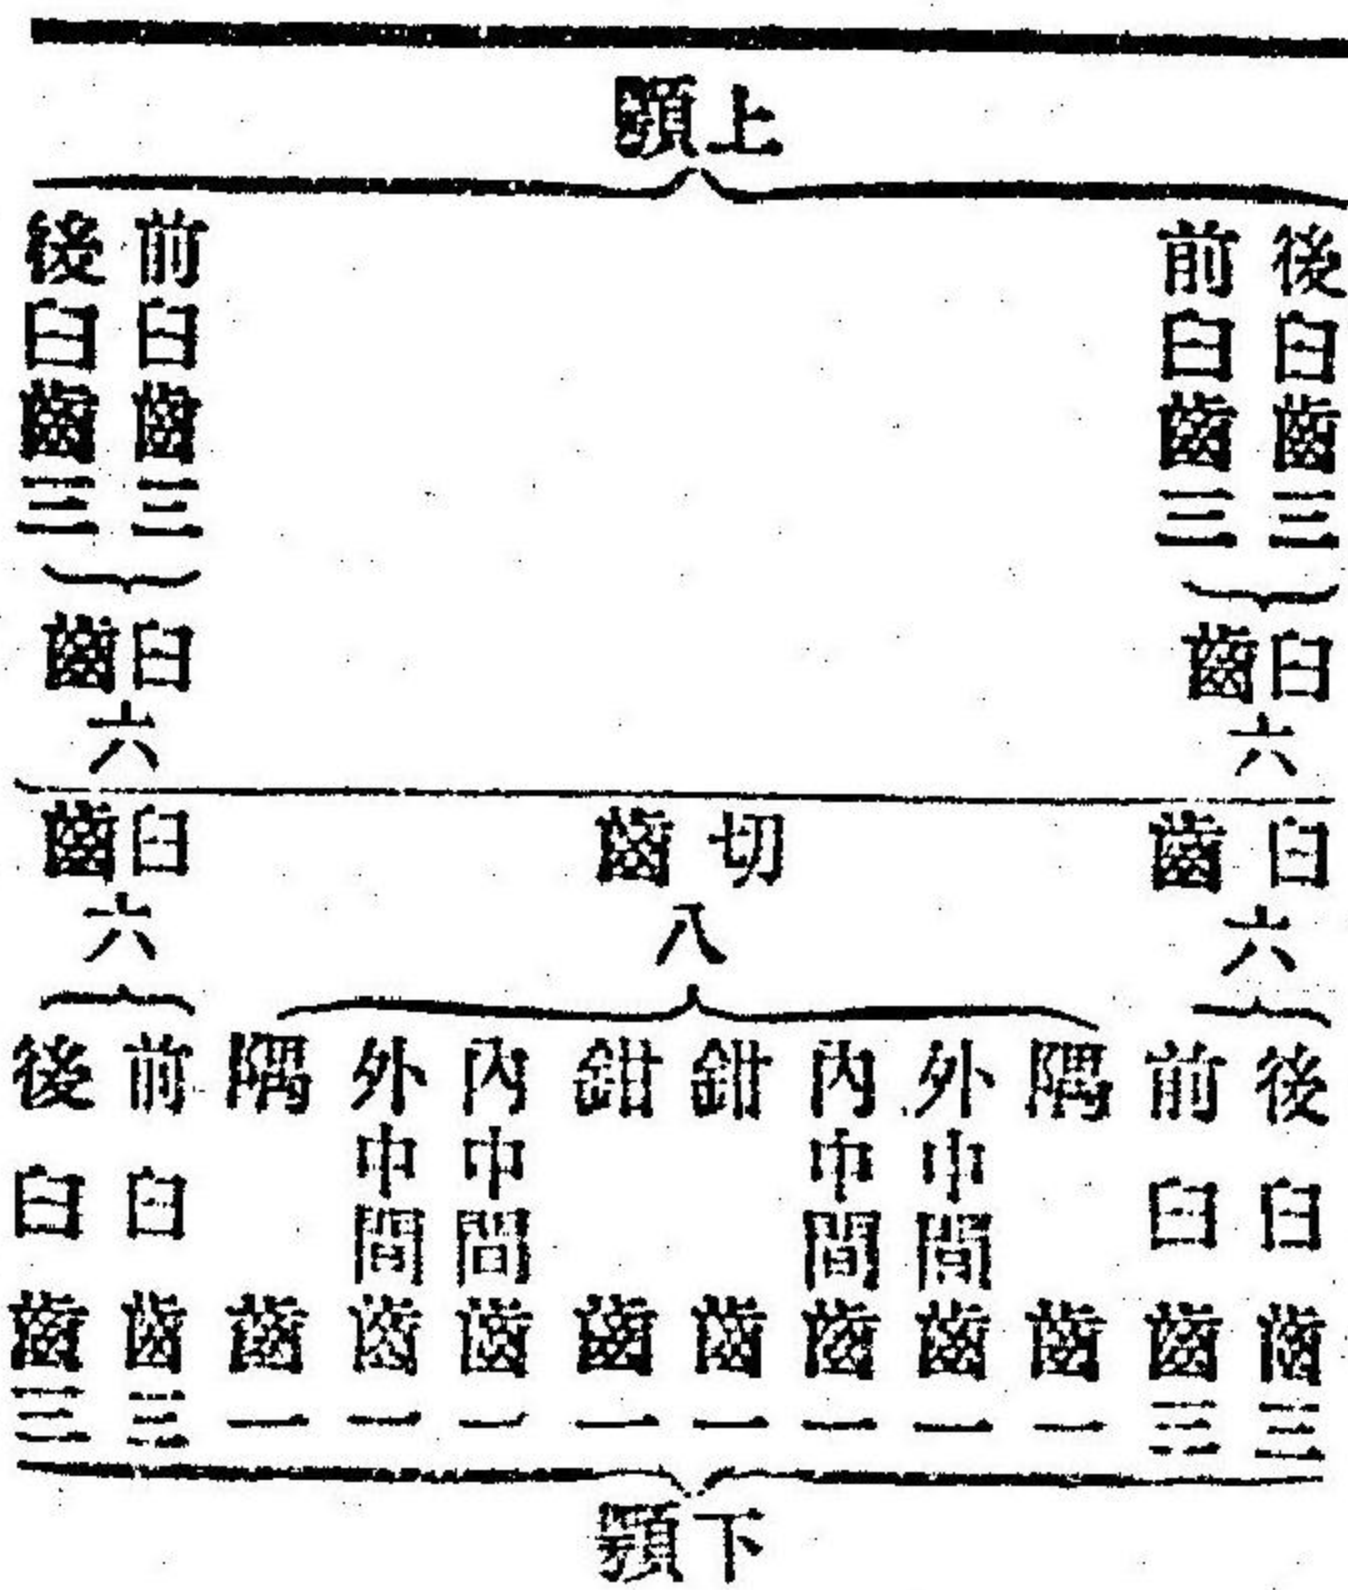 上顎
後臼齒三
前臼齒三
前臼齒三
後臼齒三
臼齒六
臼齒六
臼齒六
切齒八
臼齒六
後臼齒三
前臼齒三
隅齒一
外中間齒一
內中間齒一
鉗齒一
鉗齒一
內中間齒一
外中間齒一
隅齒一
前臼齒三
後臼齒三
下顎